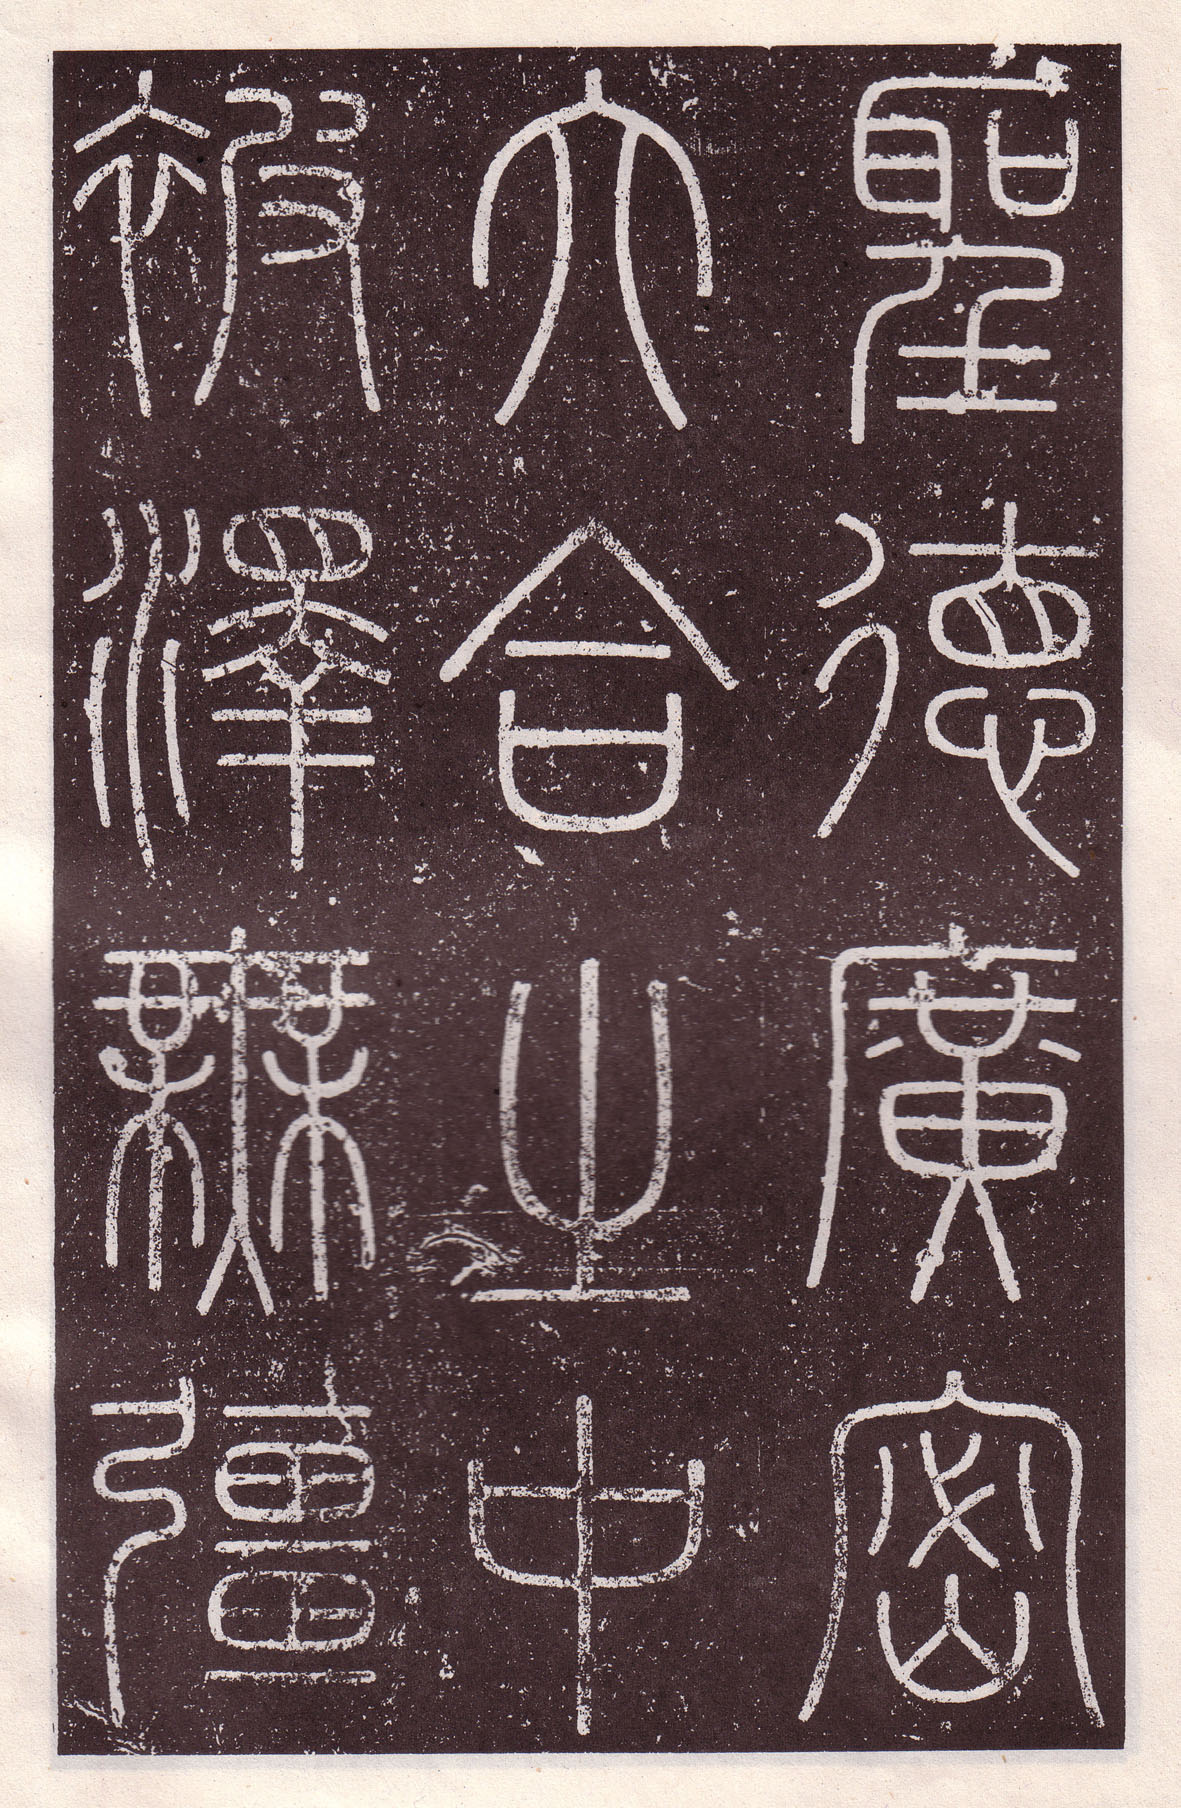 聖德廣密
六合之中
被澤無彊